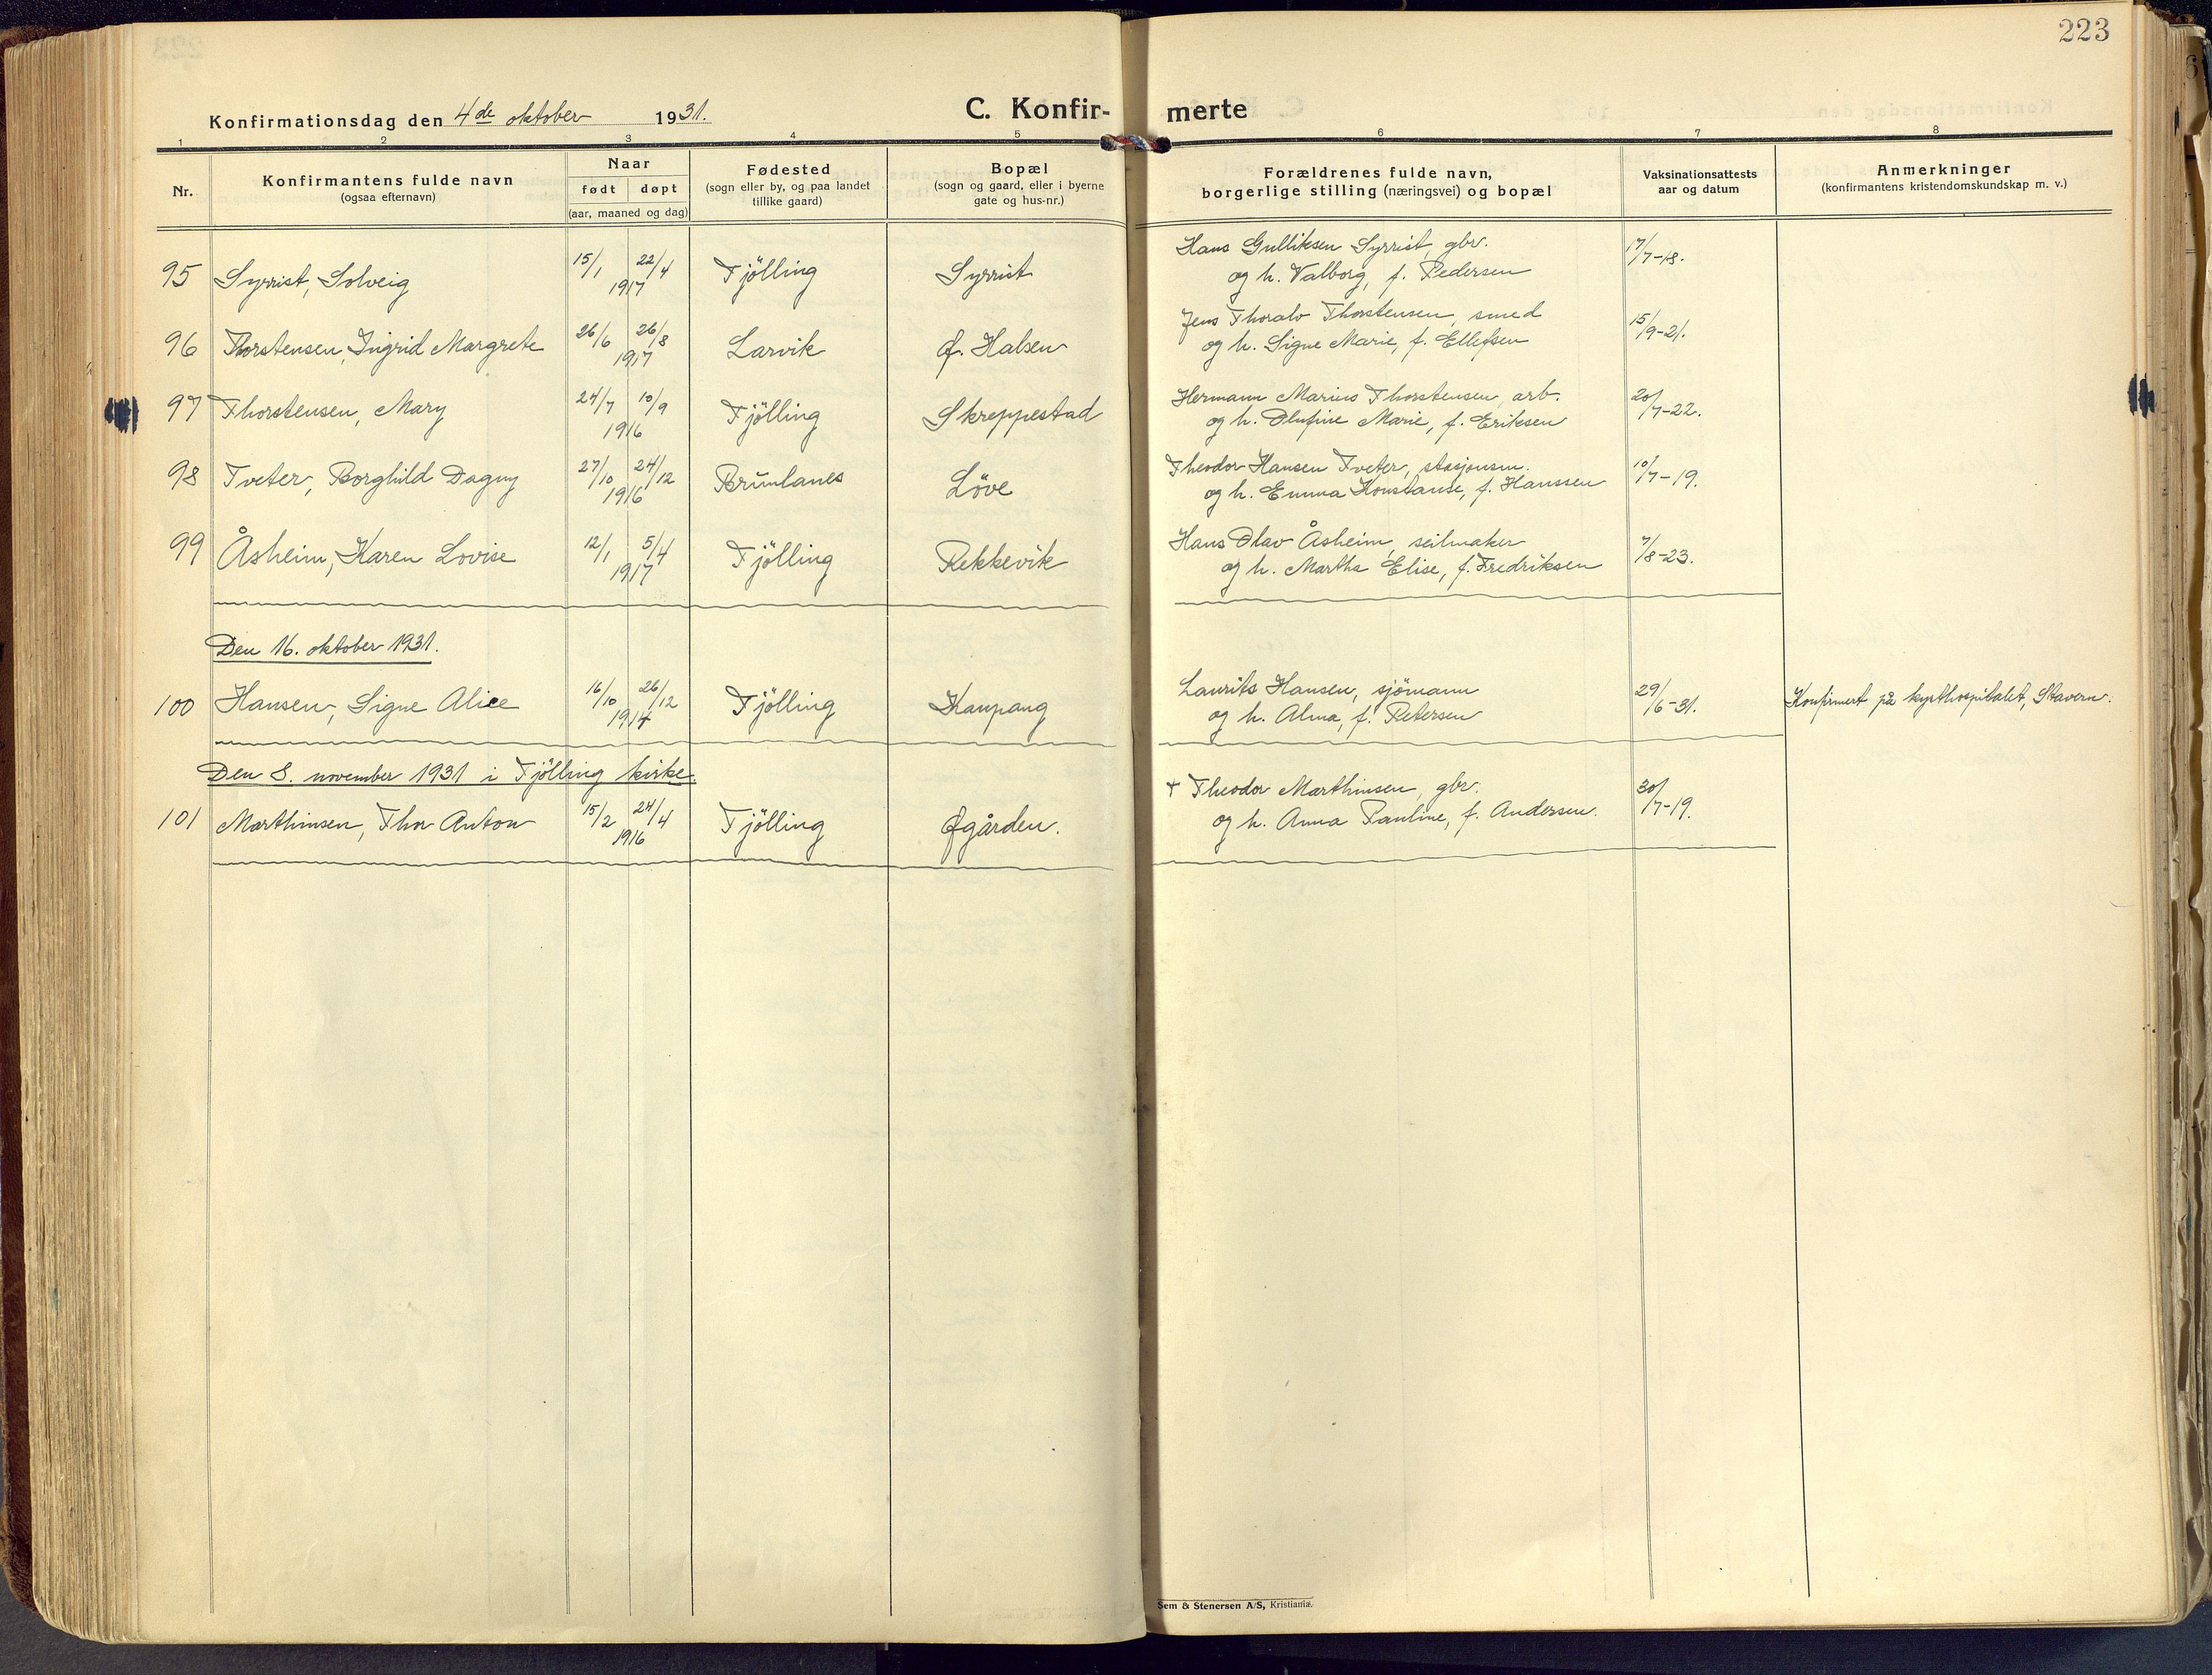 223
Konfirmationsdag den 4de oktober 1931.
C. Konfir- merte
1 2 3 4 5 6 7 8
Nr.
Konfirmantens fulde navn
(ogsaa efternavn)
Naar
født døpt
(aar, maaned og dag)
Fødested
(sogn eller by, og paa landet
tillike gaard)
Bopæl
(sogn og gaard, eller i byerne
gate og hus-nr.)
Forældrenes fulde navn,
borgerlige stilling (næringsvei) og bopæl
Vaksinationsattests
aar og datum
Anmerkninger
(konfirmantens kristendomskundskap m. v.)
95 Syrrist, Solveig 15/1 22/4 1917 Tjölling Syrrist Hans Gulliksen Syrrist, gbr. 17/7-18.
og h. Valborg, f. Pedersen
96 Thorstensen, Ingrid Margrete 26/6 26/8 1917 Larvik Ø. Halsen Jens Thoralv Thorstensen, smed 15/9-21.
og h. Signe Marie, f. Ellefsen
97 Thorstensen, Mary 24/7 10/9 1916 Tjölling Skreppestad Hermann Marius Thorstensen, arb. 20/7-22.
og h. Olufine Marie, f. Eriksen
98 Tveter, Borghild Dagny 27/10 24/12 1916 Brunlanes Löve Theodor Hansen Tveter, stasjonsm. 10/7-19.
og h. Emma Konstanse, f. Hanssen
99 Åsheim, Karen Lovise 12/1 5/4 1917 Tjölling Rekkevik Hans Olav Åsheim, seilmaker 7/8-23.
og h. Martha Elise, f. Fredriksen
Den 16. oktober 1931.
100 Hansen, Signe Alice 16/10 26/12 1914 Tjölling Kaupang Laurits Hansen, sjömann 29/6-31. Konfirmert på kysthospitalet, Stavern.
og h. Alma, f. Petersen
Den 8. november 1931 i Tjölling kirke.
101 Marthinsen, Thor Anton 15/2 24/4 1916 Tjölling Øgården. + Theodor Marthinsen, gbr. 30/7-19.
og h. Anna Pauline, f. Andersen.
Sem & Stenersen A/S, Kristiania.